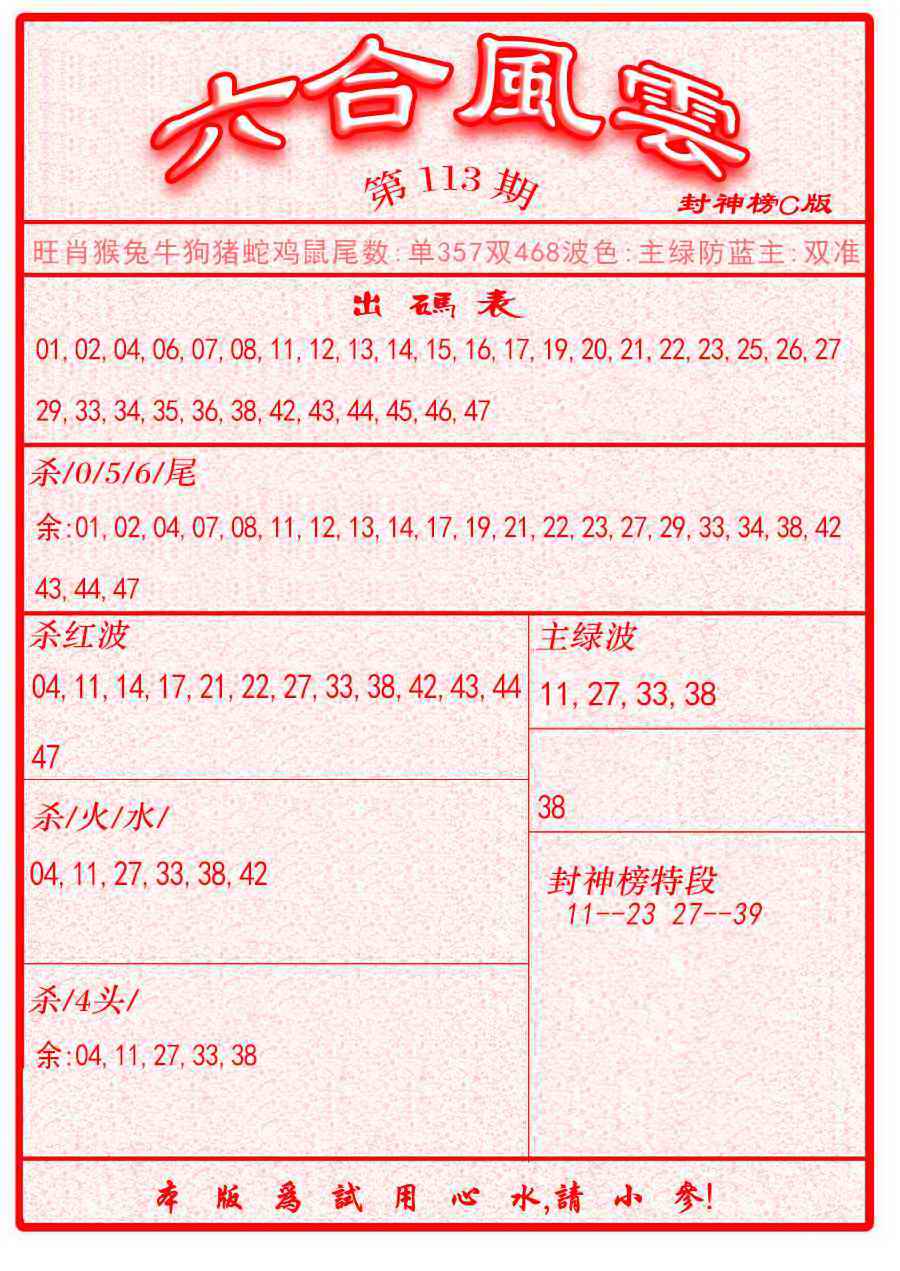 六合風雲
第113期
封神榜C版
旺肖猴兔牛狗猪蛇鸡鼠尾数:单357双468波色:主绿防蓝主:双准
出碼表
01,02,04,06,07,08,11,12,13,14,15,16,17,19,20,21,22,23,25,26,27
29,33,34,35,36,38,42,43,44,45,46,47
杀/0/5/6/尾
余:01,02,04,07,08,11,12,13,14,17,19,21,22,23,27,29,33,34,38,42
43,44,47
杀红波
04,11,14,17,21,22,27,33,38,42,43,44
47
主绿波
11,27,33,38
38
杀/火/水/
04,11,27,33,38,42
封神榜特段
11--23 27--39
杀/4头/
余:04,11,27,33,38
本版爲試用心水,請小參!